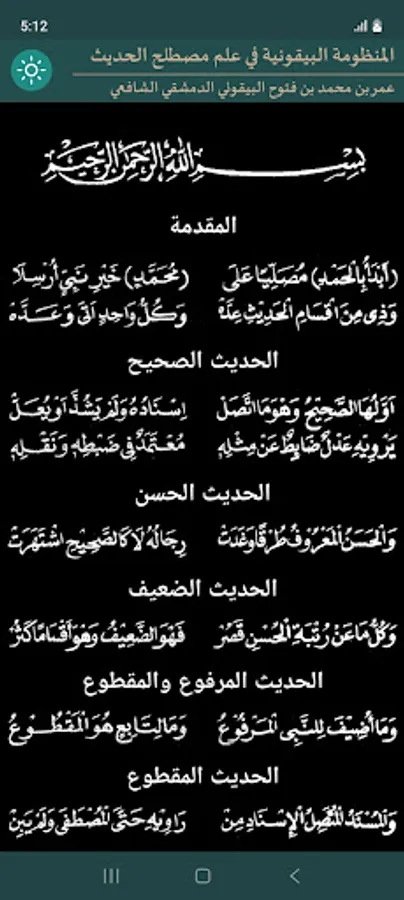 5:12
المنظومة البيقونية في علم مصطلح الحديث
عمر بن محمد بن فتوح البيقوني الدمشقي الشافعي
بِسْمِ اللهِ الرَّحْمٰنِ الرَّحِيْمِ
المقدمة
(أَبْدَأُ بِالْحَمْدِ) مُصَلِّيًا عَلَى (مُحَمَّدٍ) خَيْرِ نَبِيٍّ أُرْسِلَا
وَذِي مِنَ اقْسَامِ الْحَدِيْثِ عِدَّهْ وَكُلُّ وَاحِدٍ اَتَى وَعَدَّهْ
الحديث الصحيح
اَوَّلُهَا الصَّحِيْحُ وَهُوَ مَا اتَّصَلْ اِسْنَادُهُ وَلَمْ يَشُذَّ اَوْ يُعَلْ
يَرْوِيْهِ عَدْلٌ ضَابِطٌ عَنْ مِثْلِهِ مُعْتَمَدٌ فِي ضَبْطِهِ وَنَقْلِهِ
الحديث الحسن
وَالْحَسَنُ الْمَعْرُوْفُ طُرْقًا وَغَدَتْ رِجَالُهُ لَا كَالصَّحِيْحِ اشْتَهَرَتْ
الحديث الضعيف
وَكُلُّ مَا عَنْ رُتْبَةِ الْحُسْنِ قَصُرْ فَهُوَ الضَّعِيْفُ وَهْوَ اَقْسَامًا كَثُرْ
الحديث المرفوع والمقطوع
وَمَا اُضِيْفَ لِلنَّبِي الْمَرْفُوْعُ وَمَا لِتَابِعٍ هُوَ الْمَقْطُوْعُ
الحديث المقطوع
وَالْمُسْنَدُ الْمُتَّصِلُ الْاِسْنَادِ مِنْ رَاوِيْهِ حَتَّى الْمُصْطَفَى وَلَمْ يَبِنْ